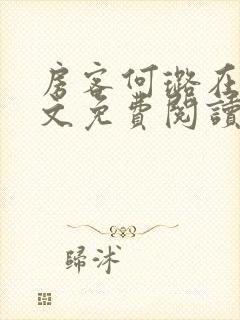 房客何璐在
文免費閱讀
歸沭